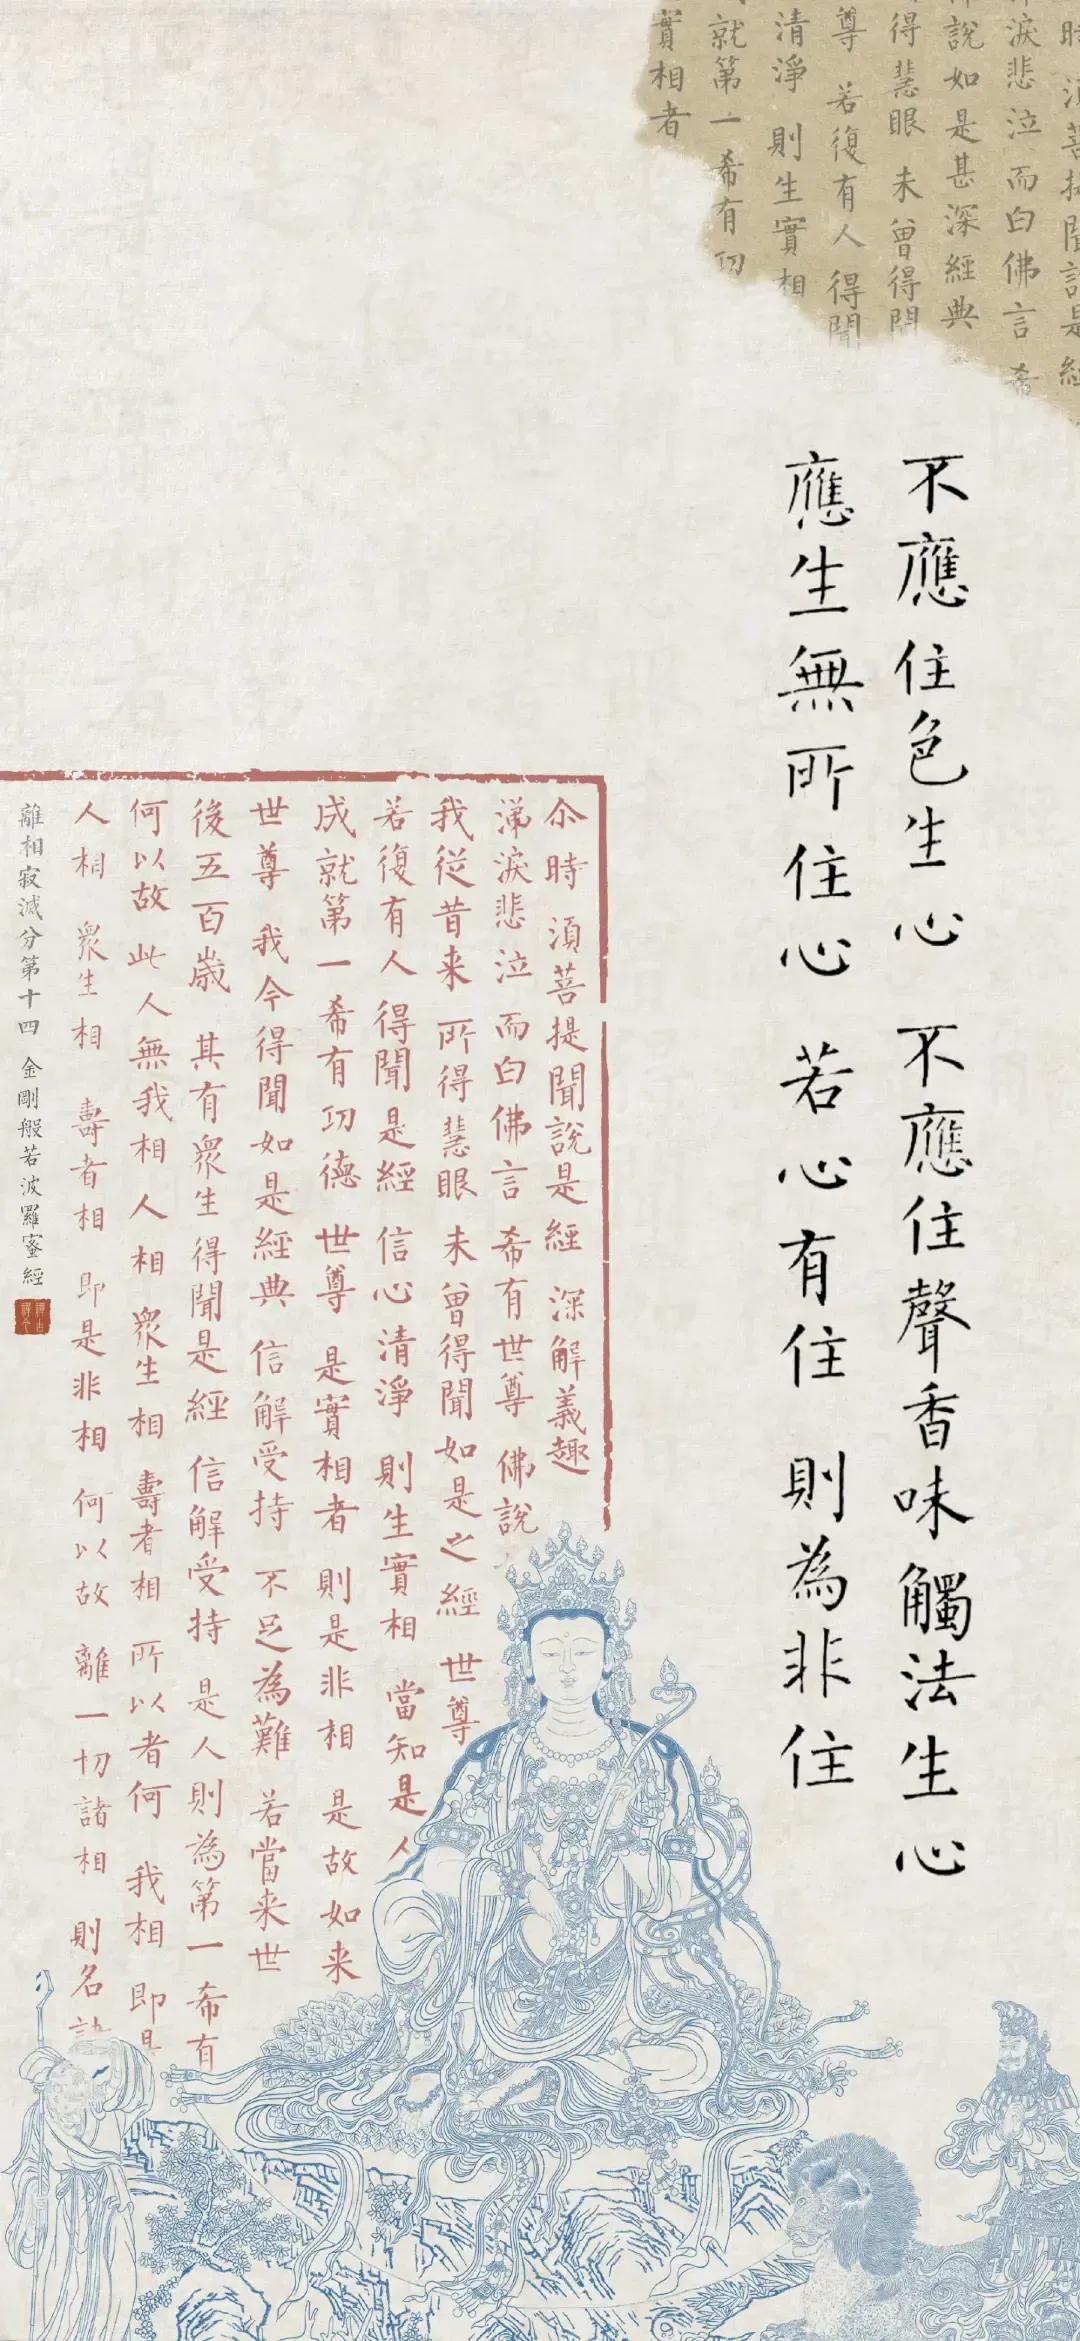 時 須菩提聞說是經
淚悲泣 而白佛言 希
說如是甚深經典
得慧眼 未曾得聞
尊 若復有人 得聞
清淨 則生實相
就第一希有功
實相者
不應住色生心 不應住聲香味觸法生心
應生無所住心 若心有住 則為非住
尒時 須菩提聞說是經 深解義趣
涕淚悲泣 而白佛言 希有世尊 佛說
我從昔来 所得慧眼 未曾得聞如是之經 世尊
若復有人 得聞是經 信心清淨 則生實相 當知是人
成就第一希有功德 世尊 是實相者 則是非相 是故如来
世尊 我今得聞如是經典 信解受持 不足為難 若當来世
後五百歲 其有衆生 得聞是經 信解受持 是人則為第一希有
何以故 此人無我相 人相 衆生相 壽者相 所以者何 我相 即是
人相 衆生相 壽者相 即是非相 何以故 離一切諸相 則名
離相寂滅分第十四 金剛般若波羅蜜經